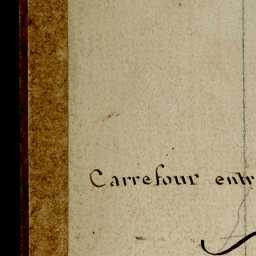 Carrefour entr